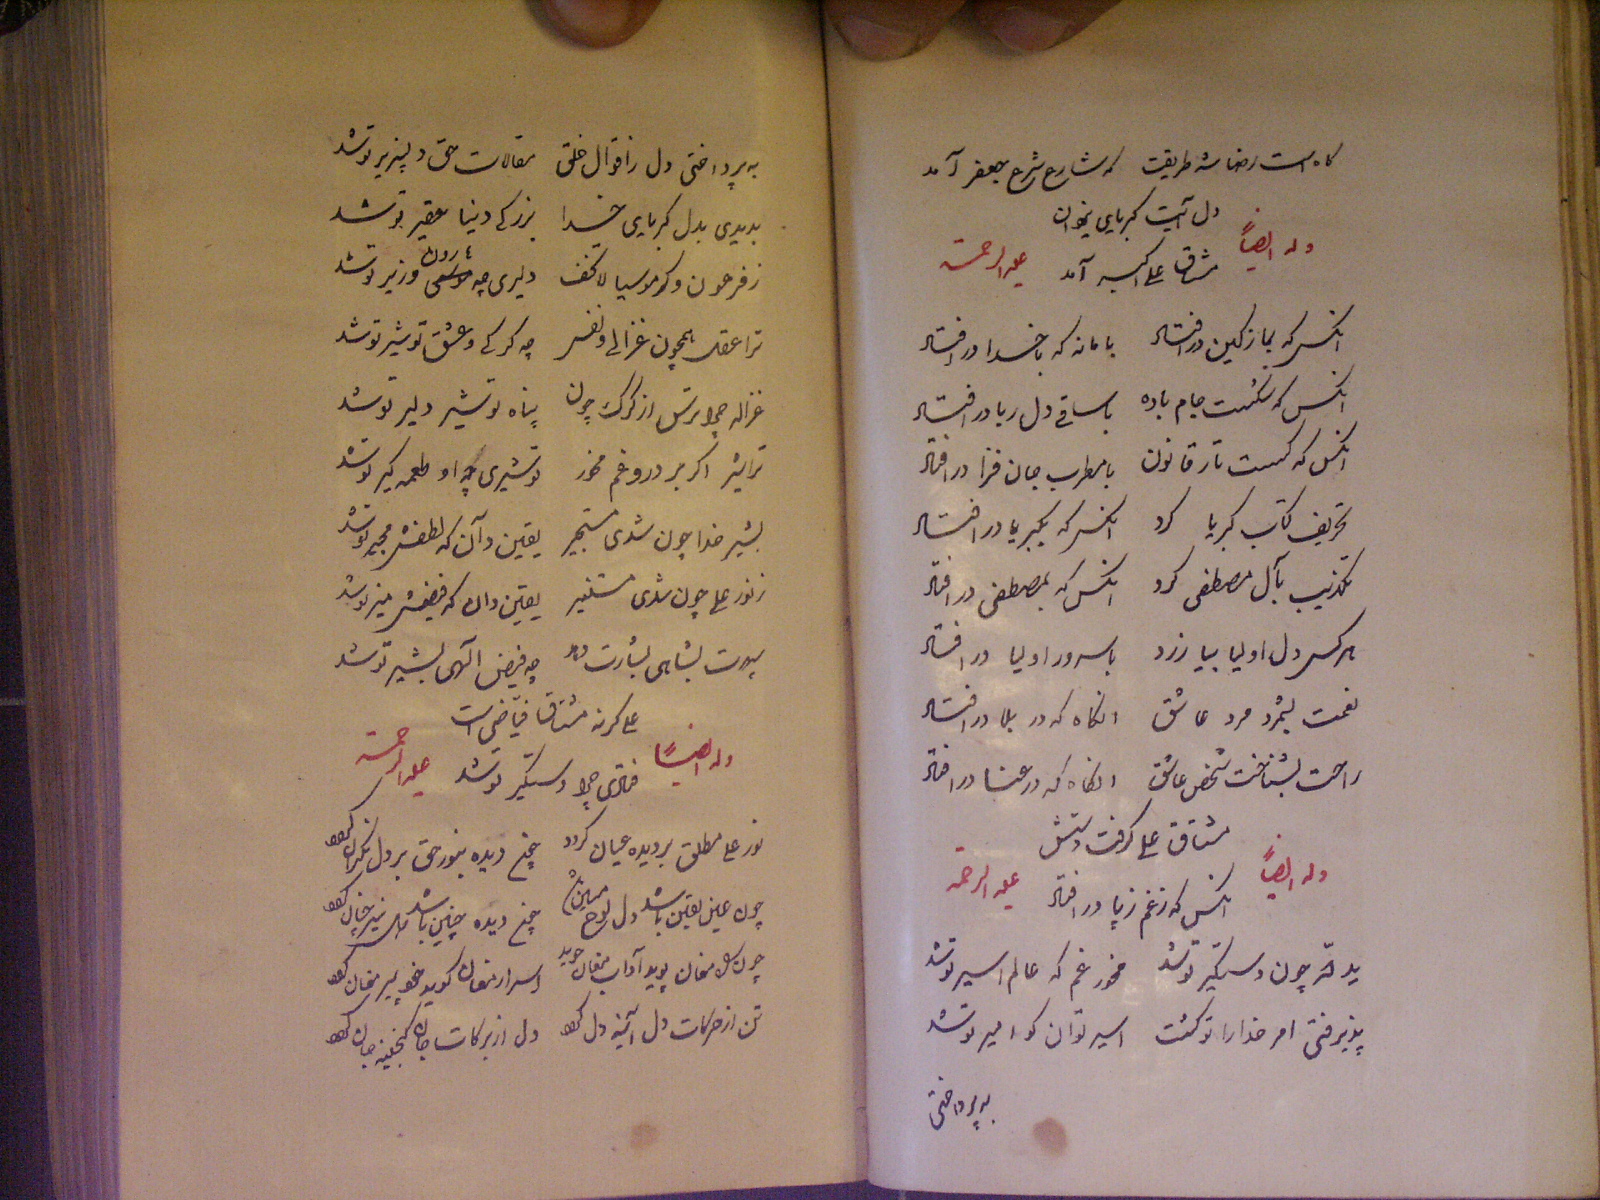 که شارع شرع جعفر آمد
دل آیت کبریای بخوان
وله ایضاً
علیه الرحمة
مشتاق علی اکبر آمد
آنکس که بما ز کین در افتاد با ما نه که با خدا در افتاد
آنکس که شکست جام باده با ساقی دل ربا در افتاد
آنکس که گسست تار قانون با مطرب جان فزا در افتاد
تحریف کتاب کبریا کرد آنکس که بکبریا در افتاد
تکذیب بآل مصطفی کرد آنکس که بمصطفی در افتاد
هر کس دل اولیا بیازرد با سرور اولیا در افتاد
نعمت بشمرد مرد عاشق آنگاه که در بلا در افتاد
راحت بشناخت شخص عاشق آنگاه که در عنا در افتاد
مشتاق علی گرفت دستش
وله ایضاً
علیه الرحمة
آنکس که ز غم ز پا در افتاد
ید الله چون دستگیر تو شد مخور غم که عالم اسیر تو شد
پذیرفتی امر خدا را تو گشت اسیر تو آن کو امیر تو شد
به پرداختی
به پرداختی دل ز اقوال خلق مقالات حق دلپذیر تو شد
بدیدی بدل کبریای خدا بزرگی دنیا حقیر تو شد
ز فرعون و کو موسیا لا تخف دلیری چه هارون وزیر تو شد
ترا عقل همچون غزالی و نفس چه گرگی و عشق تو شیر تو شد
غزاله چرا ترسد از گرگ چون پناه تو شیر دلیر تو شد
ترا شیر اگر بر درد غم مخور تو شیری چه او طعمه گیر تو شد
بشیر خدا چون شدی مستجیر یقین دان که لطفش مجیر تو شد
ز نور علی چون شدی مستنیر یقین دان که فیضش منیر تو شد
بشارت چه فیض الهی بشیر تو شد
علی گر نه مشتاق فیاضی است
وله ایضاً
علیه الرحمة
فتادی چرا دستگیر تو شد
نور علی مطلق بر دیده عیان گردد چشم دیده بنور حق بر دل نگران گردد
چون عین یقین باشد دل لوح مبین باشد
چون پیر مغان گوید آداب مغان جوید اسرار مغان گوید خود پیر مغان گردد
تن از حرکات دل آئینه دل گردد دل از برکات جان گنجینه جان گردد